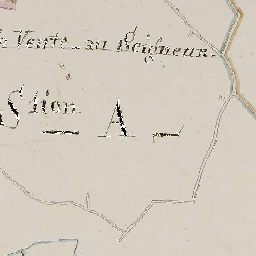 Vente au Seigneur.
Stion A